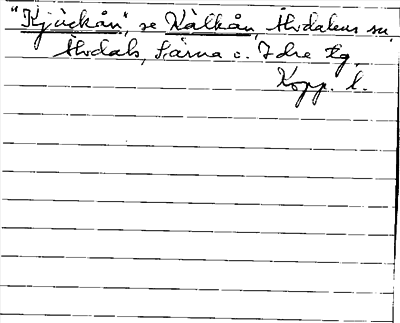 "Kjäckån", se Vålkån, Älvdalens sn,
Älvdals, Särna o. Idre tg,
Kopp. l.